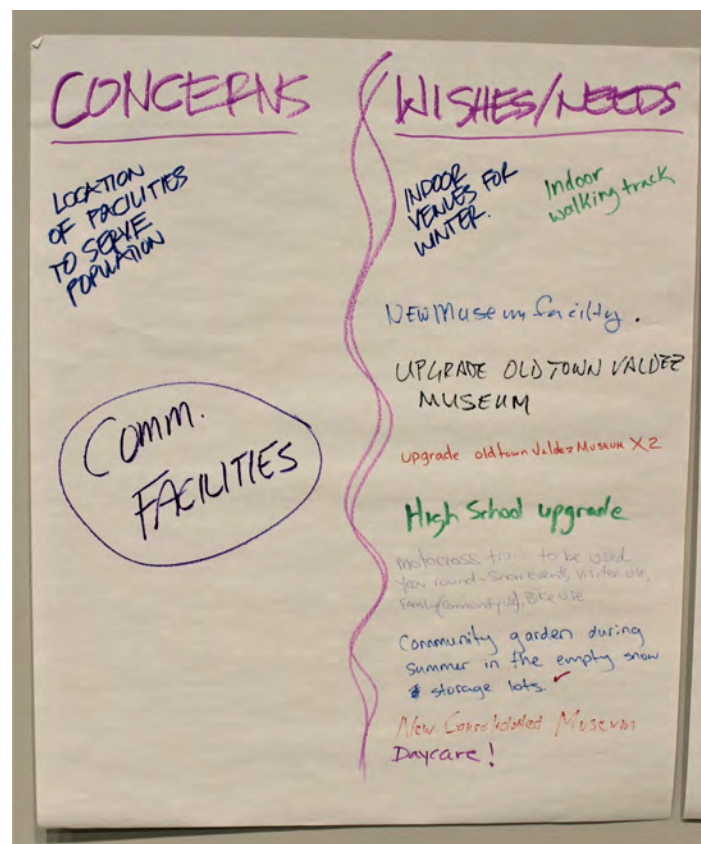 CONCERNS
LOCATION
OF FACILITIES
TO SERVE
POPULATION
Comm.
FACILITIES
WISHES/NEEDS
INDOOR
VENUES FOR
WINTER.
Indoor
walking track
NEW Museum facilty.
UPGRADE OLD TOWN VALDEZ
MUSEUM
upgrade old town Valdez Museum X2
High School upgrade
motocross track to be used
year round - snow events, visitor use,
Family/Community use, Bike use
Community garden during
summer in the empty snow
storage lots. ✓
New Consolidated Museum
Daycare!